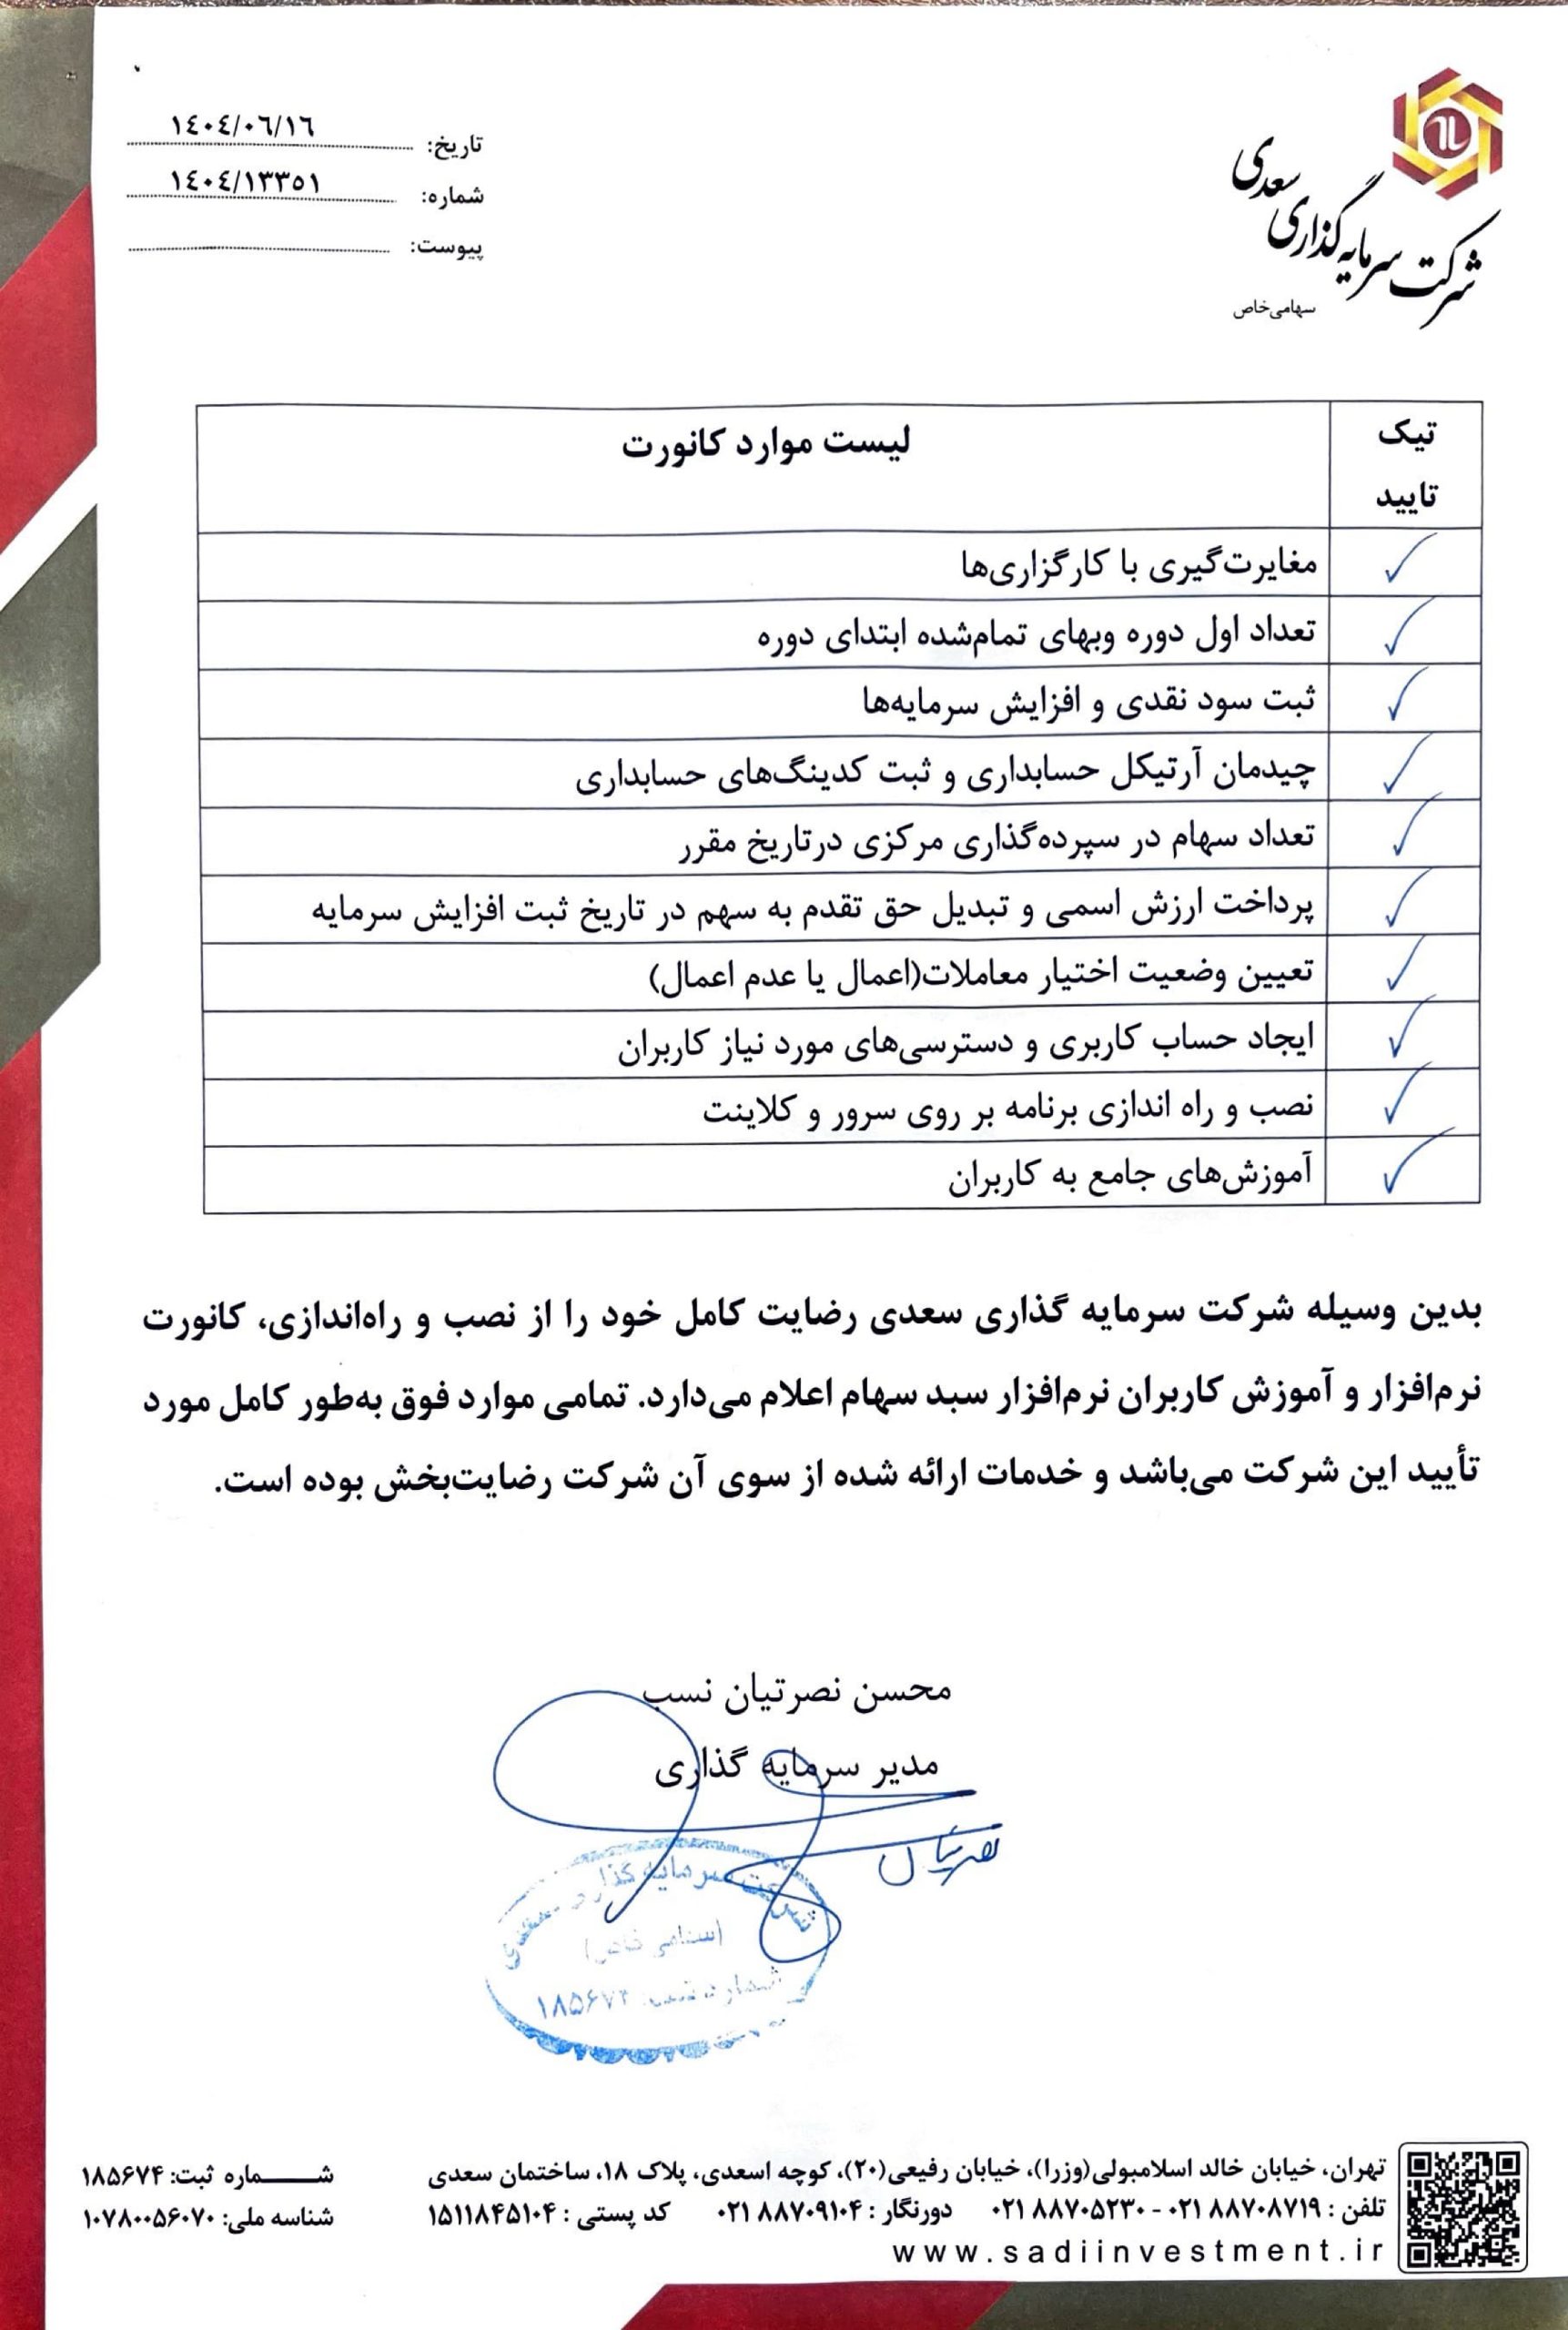 شرکت سرمایه گذاری سعدی
سهامی خاص
تاریخ: ١٤٠٤/٠٦/١٦
شماره: ١٤٠٤/١٣٣٥١
پیوست:
تیک تایید
لیست موارد کانورت
مغایرت‌گیری با کارگزاری‌ها
تعداد اول دوره وبهای تمام‌شده ابتدای دوره
ثبت سود نقدی و افزایش سرمایه‌ها
چیدمان آرتیکل حسابداری و ثبت کدینگ‌های حسابداری
تعداد سهام در سپرده‌گذاری مرکزی درتاریخ مقرر
پرداخت ارزش اسمی و تبدیل حق تقدم به سهم در تاریخ ثبت افزایش سرمایه
تعیین وضعیت اختیار معاملات(اعمال یا عدم اعمال)
ایجاد حساب کاربری و دسترسی‌های مورد نیاز کاربران
نصب و راه اندازی برنامه بر روی سرور و کلاینت
آموزش‌های جامع به کاربران
بدین وسیله شرکت سرمایه گذاری سعدی رضایت کامل خود را از نصب و راه‌اندازی، کانورت
نرم‌افزار و آموزش کاربران نرم‌افزار سبد سهام اعلام می‌دارد. تمامی موارد فوق به‌طور کامل مورد
تأیید این شرکت می‌باشد و خدمات ارائه شده از سوی آن شرکت رضایت‌بخش بوده است.
محسن نصرتیان نسب
مدیر سرمایه گذاری
شرکت سرمایه گذاری سعدی
(سهامی خاص)
شماره ثبت: ۱۸۵۶۷۴
تهران، خیابان خالد اسلامبولی(وزرا)، خیابان رفیعی(۲۰)، کوچه اسعدی، پلاک ۱۸، ساختمان سعدی
شماره ثبت: ۱۸۵۶۷۴
تلفن : ۸۸۷۰۸۷۱۹ ۰۲۱ - ۸۸۷۰۵۲۳۰ ۰۲۱ دورنگار : ۸۸۷۰۹۱۰۴ ۰۲۱ کد پستی : ۱۵۱۱۸۴۵۱۰۴
شناسه ملی: ۱۰۷۸۰۰۵۶۰۷۰
www.sadiinvestment.ir